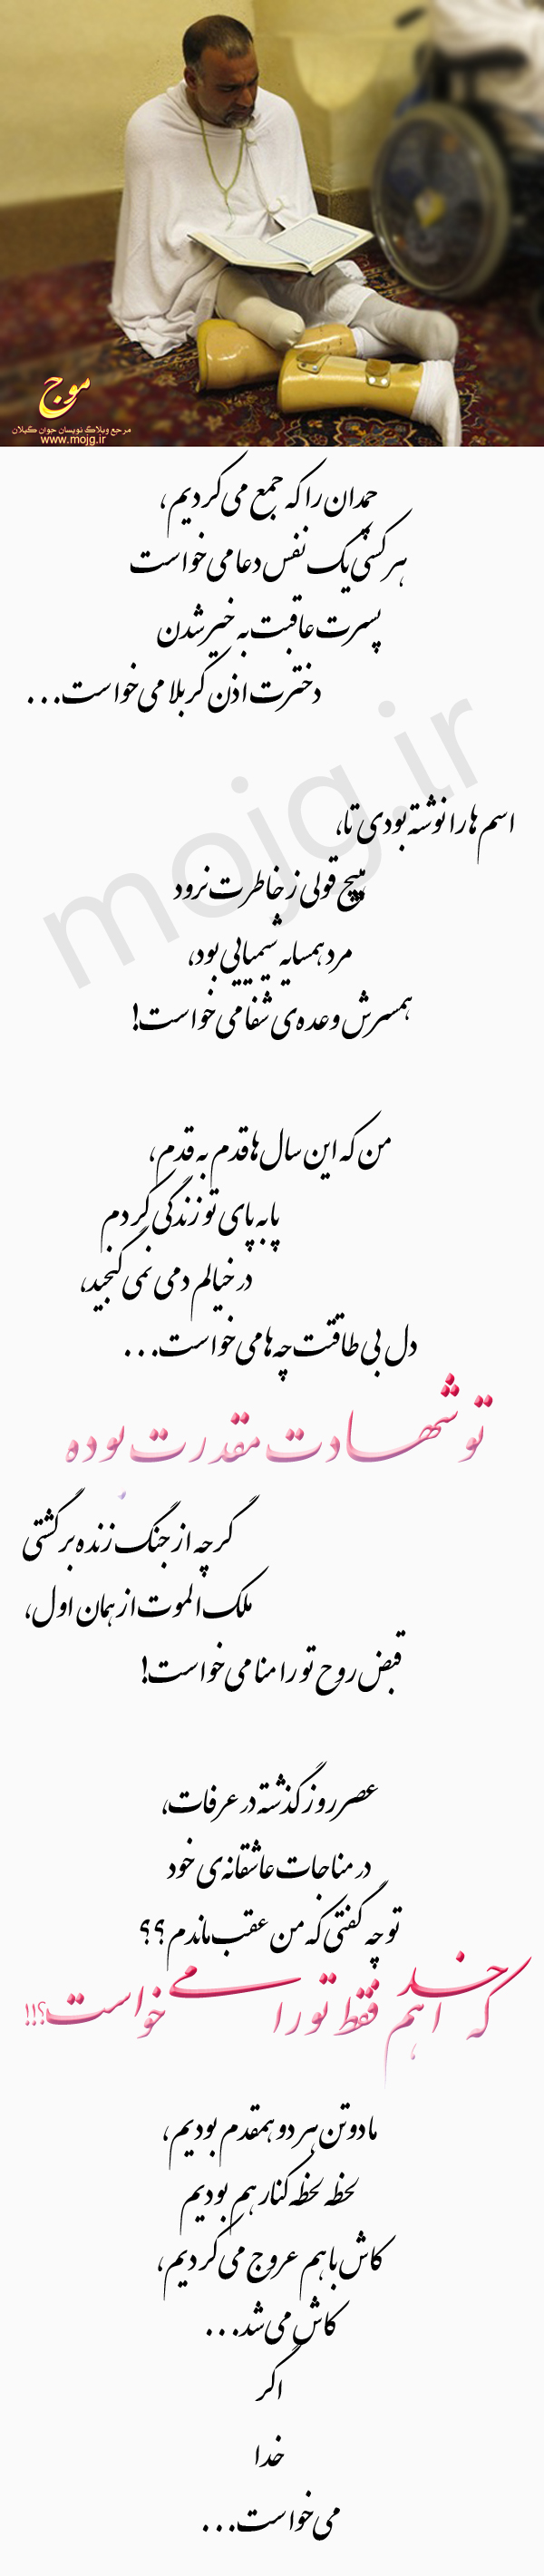 موج
مرجع وبلاگ نویسان جوان گیلان
www.mojg.ir
چمدان را که جمع می‌کردیم،
هر کسی یک نفس دعا می‌خواست
پسرت عاقبت به خیر شدن
دخترت اذن کربلا می‌خواست...
mojg.ir
اسم ها را نوشته بودی تا،
هیچ قولی ز خاطرت نرود
مرد همسایه شیمیایی بود،
همسرش وعده‌ی شفا می‌خواست!
من که این سال ها قدم به قدم،
پا به پای تو زندگی کردم
در خیالم دمی نمی گنجید،
دل بی طاقتت چه ها می‌خواست...
تو شهادت مقدرت بوده
گرچه از جنگ زنده برگشتی
ملک الموت از همان اول،
قبض روح تو را منا می‌خواست!
عصر روز گذشته در عرفات،
در مناجات عاشقانه‌ی خود
تو چه گفتی که من عقب ماندم؟؟
که خدا هم فقط تو را می خواست؟!!
ما دو تن هر دو همقدم بودیم،
لحظه لحظه کنار هم بودیم
کاش با هم عروج می‌کردیم،
کاش می‌شد...
اگر
خدا
می‌خواست...